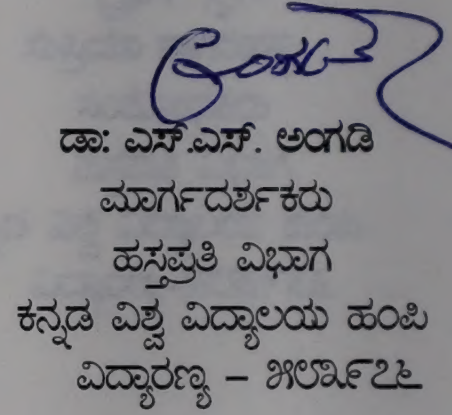 ಡಾ: ಎಸ್.ಎಸ್. ಅಂಗಡಿ
ಮಾರ್ಗದರ್ಶಕರು
ಹಸ್ತಪ್ರತಿ ವಿಭಾಗ
ಕನ್ನಡ ವಿಶ್ವ ವಿದ್ಯಾಲಯ ಹಂಪಿ
ವಿದ್ಯಾರಣ್ಯ – ೫೮೩೯೭೬